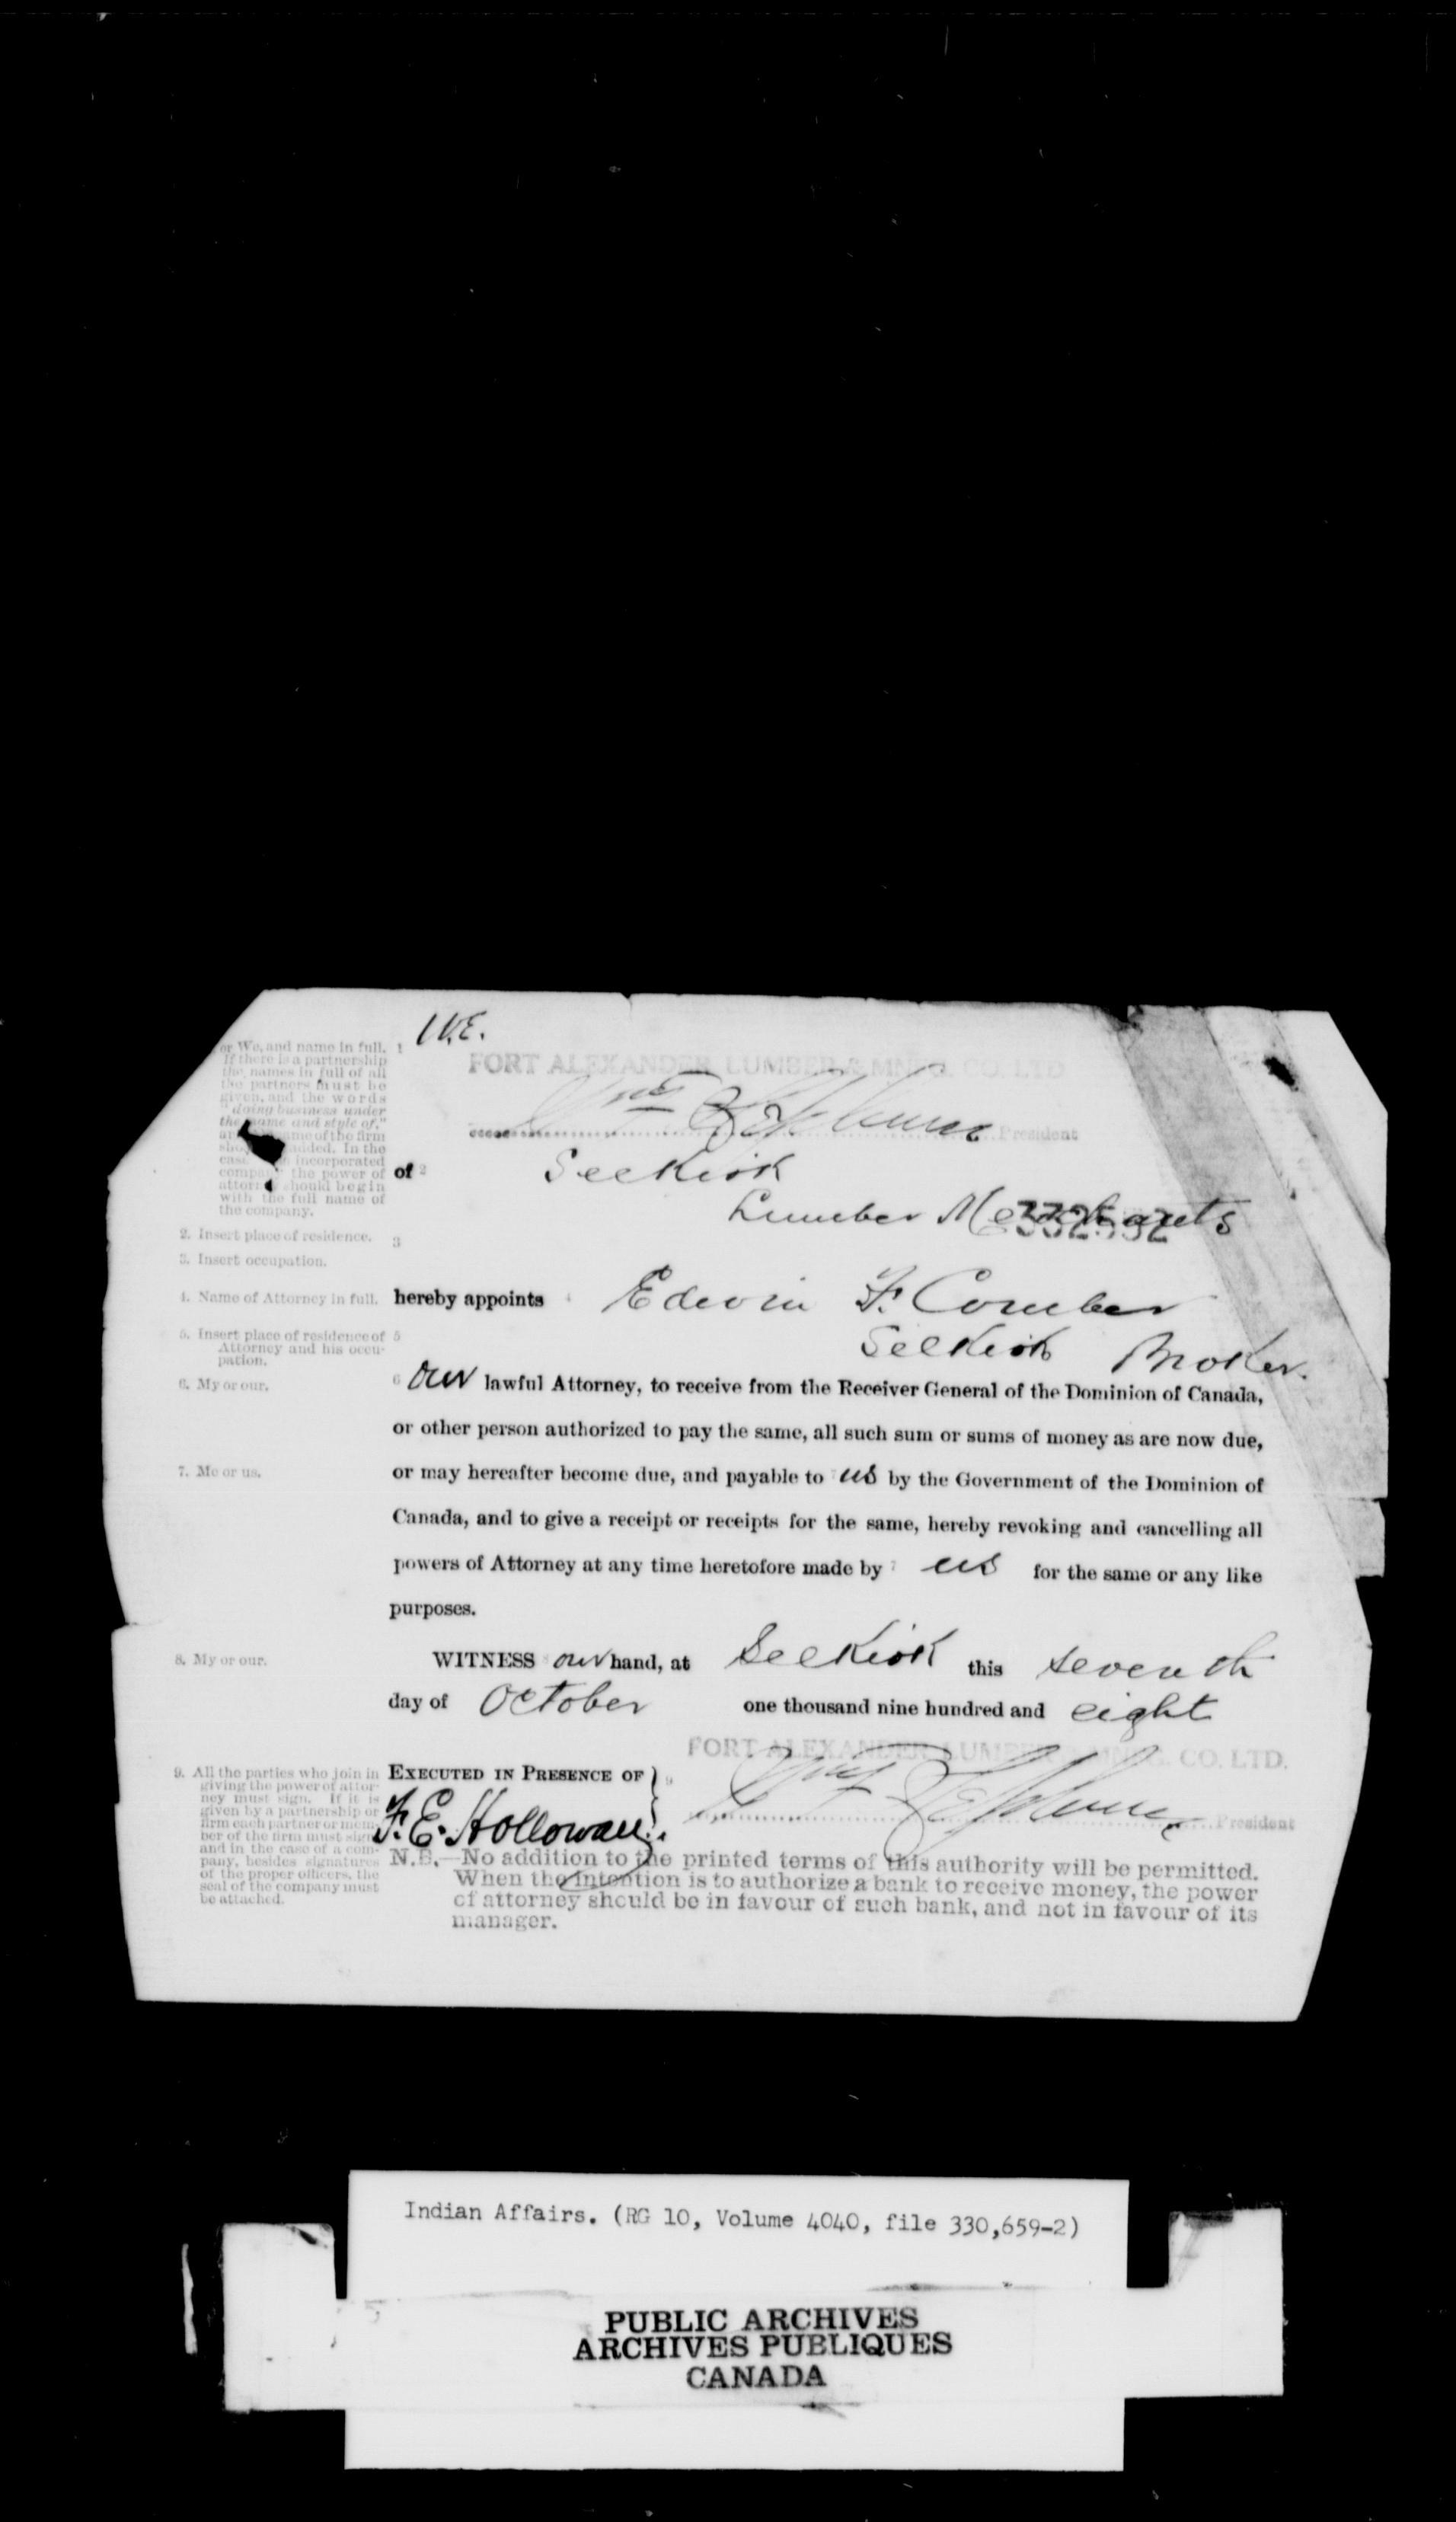 WE.
1
FORT ALEXANDER LUMBER & MNFG. CO. LTD
President
of 2 Selkirk
Lumber Merchants
332532
3
hereby appoints Edwin F. Comber
5 Selkirk Broker.
6 our lawful Attorney, to receive from the Receiver General of the Dominion of Canada,
or other person authorized to pay the same, all such sum or sums of money as are now due,
or may hereafter become due, and payable to us by the Government of the Dominion of
Canada, and to give a receipt or receipts for the same, hereby revoking and cancelling all
powers of Attorney at any time heretofore made by 7 us for the same or any like
purposes.
WITNESS our hand, at Selkirk this seventh
day of October one thousand nine hundred and eight
FORT ALEXANDER LUMBER & MNFG. CO. LTD.
EXECUTED IN PRESENCE OF } 9
President
F. E. Holloway.
N.B.—No addition to the printed terms of this authority will be permitted.
When the intention is to authorize a bank to receive money, the power
of attorney should be in favour of such bank, and not in favour of its
manager.
or We, and name in full.
If there is a partnership
the names in full of all
the partners must be
given, and the words
"doing business under
the name and style of,"
name of the firm
added. In the
incorporated
company the power of
attorney should begin
with the full name of
the company.
2. Insert place of residence.
3. Insert occupation.
4. Name of Attorney in full.
5. Insert place of residence of
Attorney and his occu-
pation.
6. My or our.
7. Me or us.
8. My or our.
9. All the parties who join in
giving the power of attor-
ney must sign. If it is
given by a partnership or
firm each partner or mem-
ber of the firm must sign
and in the case of a com-
pany, besides signatures
of the proper officers, the
seal of the company must
be attached.
Indian Affairs. (RG 10, Volume 4040, file 330,659-2)
PUBLIC ARCHIVES
ARCHIVES PUBLIQUES
CANADA